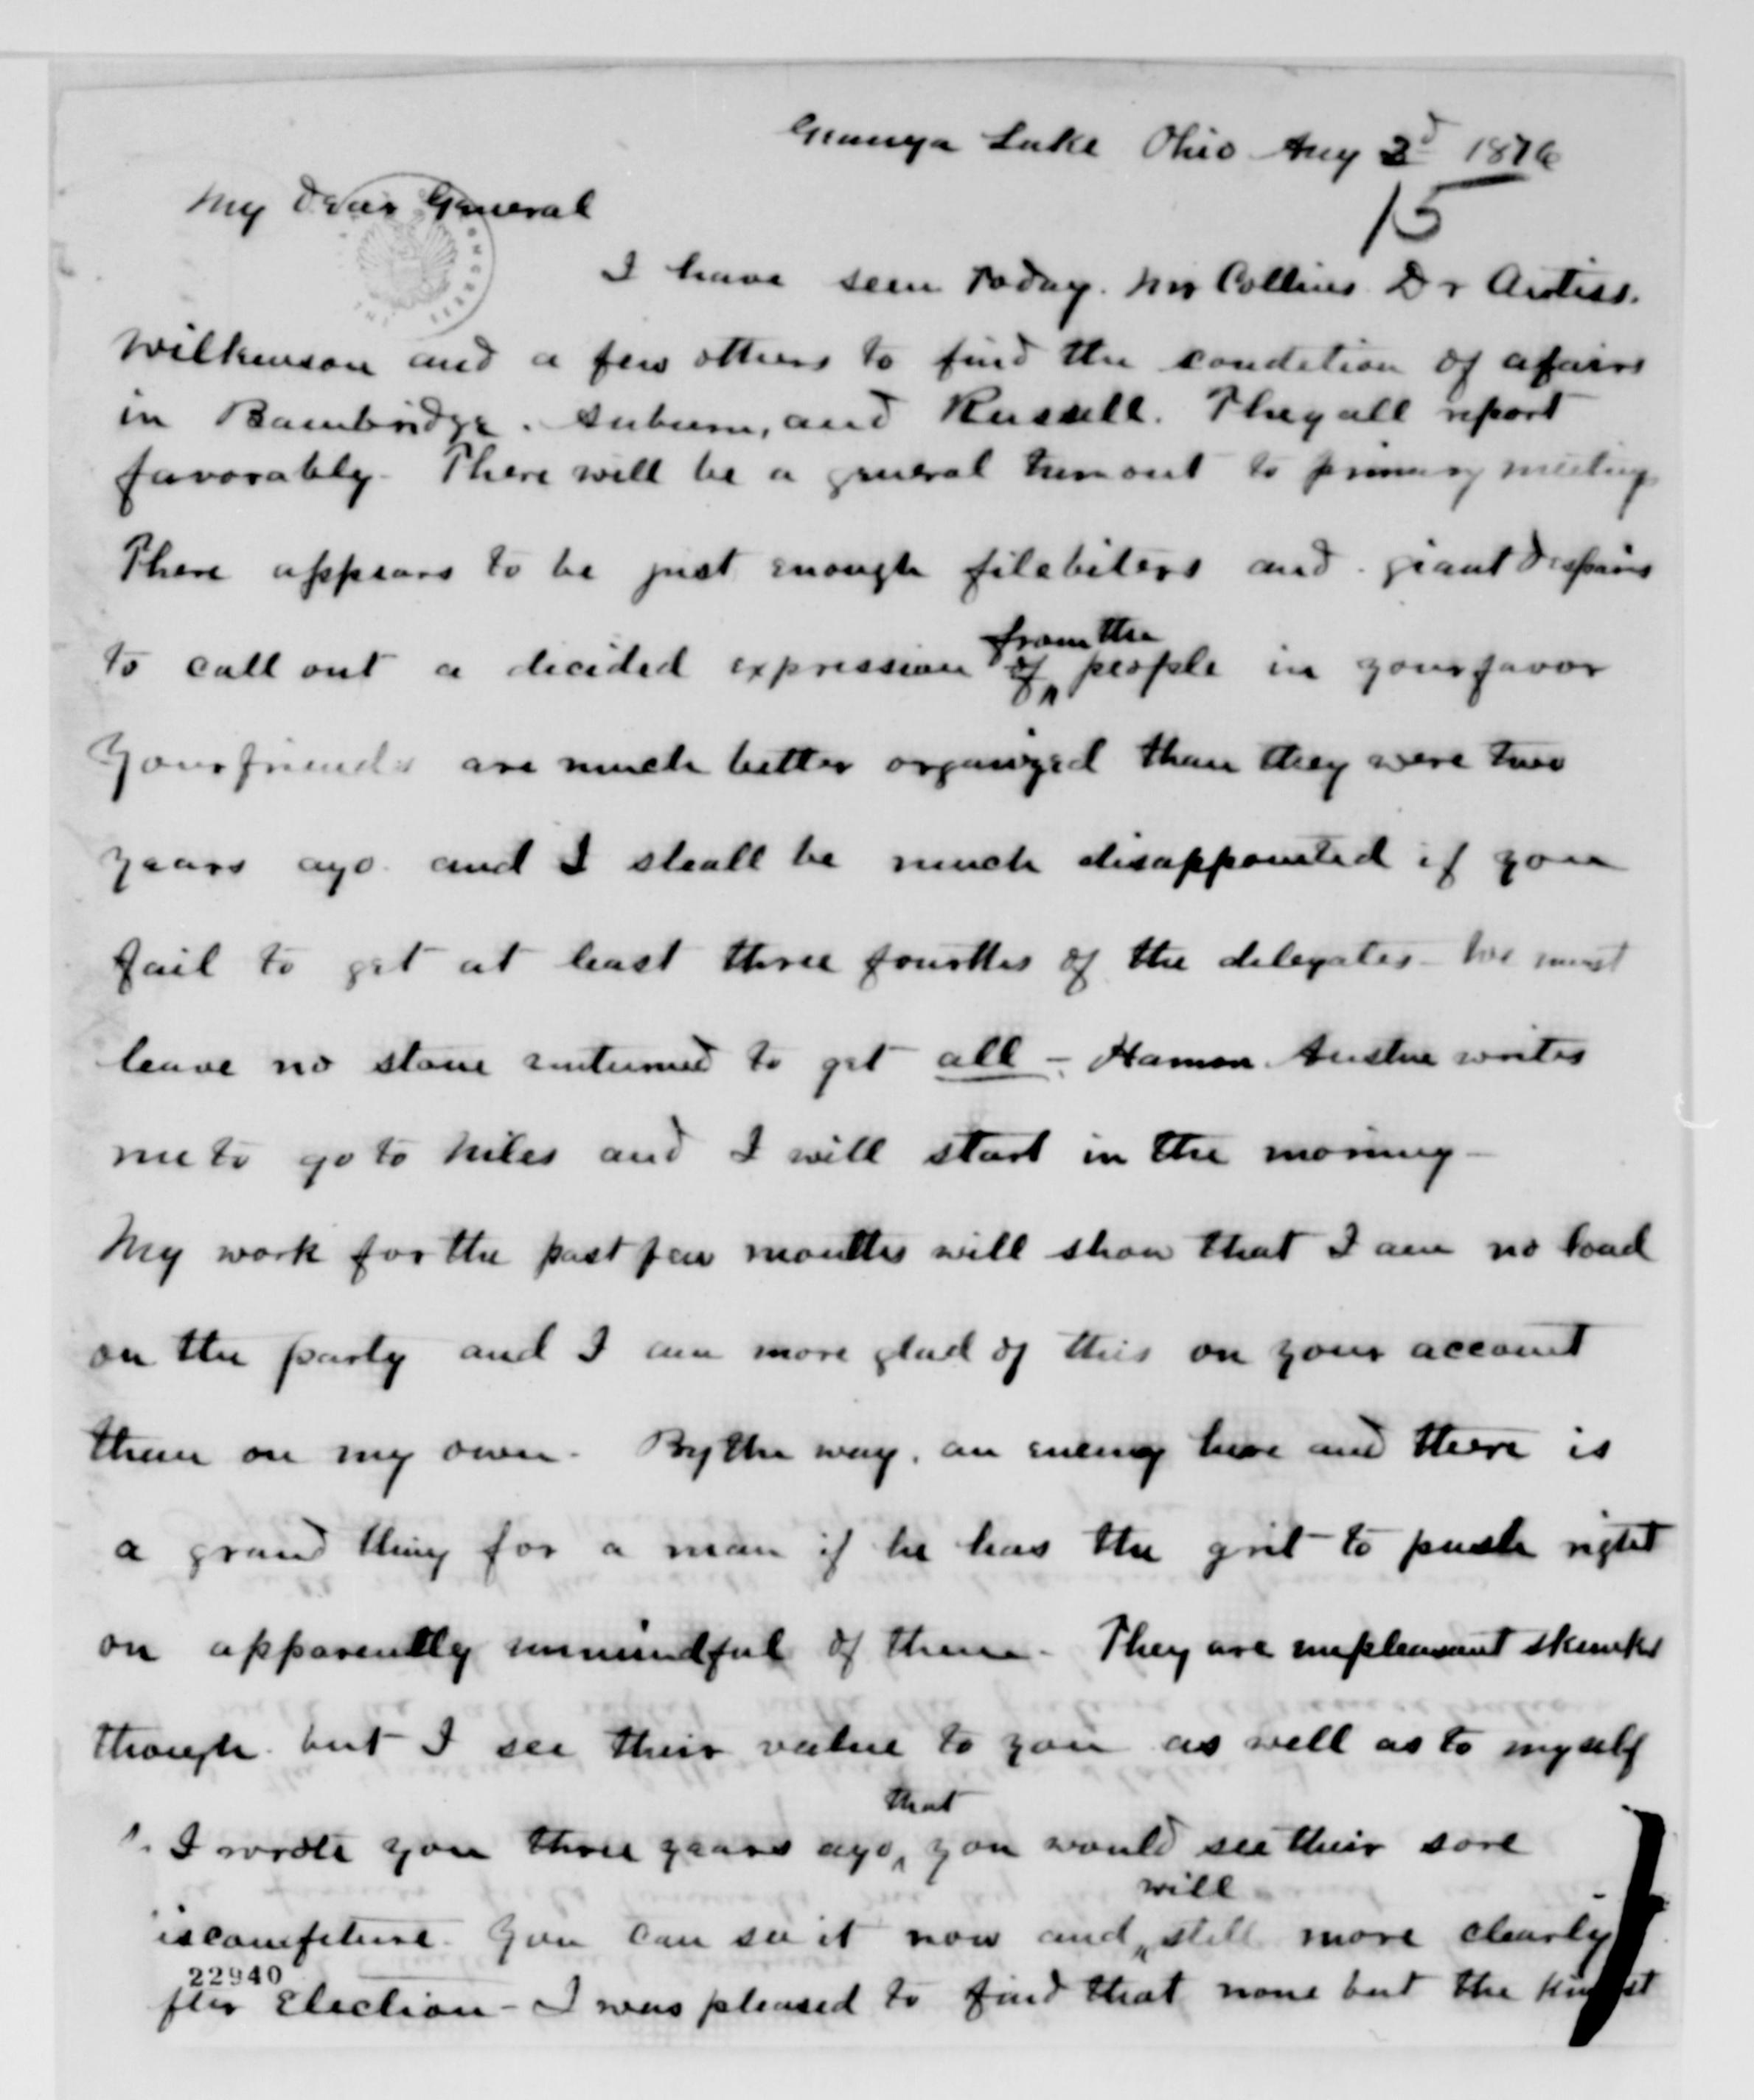 Geauga Lake Ohio Aug 3d 1876
15
My Dear General
I have seen Today. Mr Collins Dr Curtiss.
Wilkinson and a few others to find the condition of afairs
in Bainbridge. Auburn, and Russell. They all report
favorably. There will be a general turn out to primary meetings
There appears to be just enough filebiters and giant despairs
to call out a decided expression of from the people in your favor
Your friends are much better organized than they were two
years ago and I shall be much disappointed if you
fail to get at least three fourths of the delegates - We must
leave no stone unturned to get all - Harmon Austin writes
me to go to Niles and I will start in the morning -
My work for the past few months will show that I am no load
on the party and I am more glad of this on your account
than on my own. By the way, an enemy here and there is
a grand thing for a man if he has the grit to push right
on apparently unmindful of them. They are unpleasant skunks
though but I see their value to you as well as to myself
I wrote you three years ago, that you would see their sore
iscomfiture. You can see it now and will still more clearly
fter Election - I was pleased to find that none but the
22940